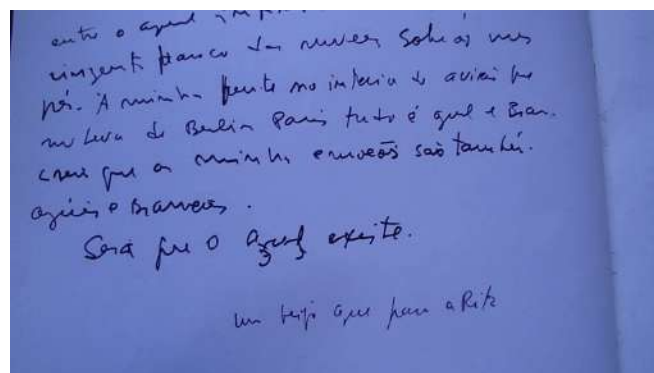 entre o azul
cinzento branco das nuvens sob os meus
pés. À minha frente no interior do avião que
me leva de Berlin Paris tudo é azul e bran.
creio que as minhas emoções são também.
azuis e brancas.
Será que o azul existe.
um beijo azul para a Rita